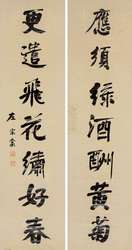 應須綠酒酬黃菊
更遣飛花繡好春
左宗棠